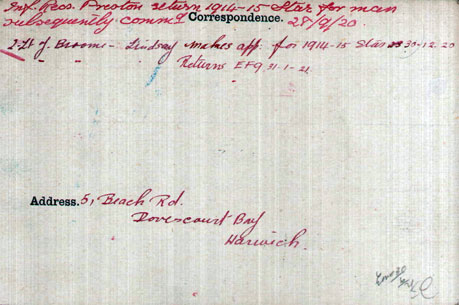 Inf. Rec. Preston return 1914-15 Star for man
subsequently commd Correspondence. 28/9/20.
2-Lt J. Broome-Lindsay makes app. for 1914-15 Star 30-12-20
Returns EF9. 31-1-21
Address. 5, Beach Rd.
Dovercourt Bay
Harwich.